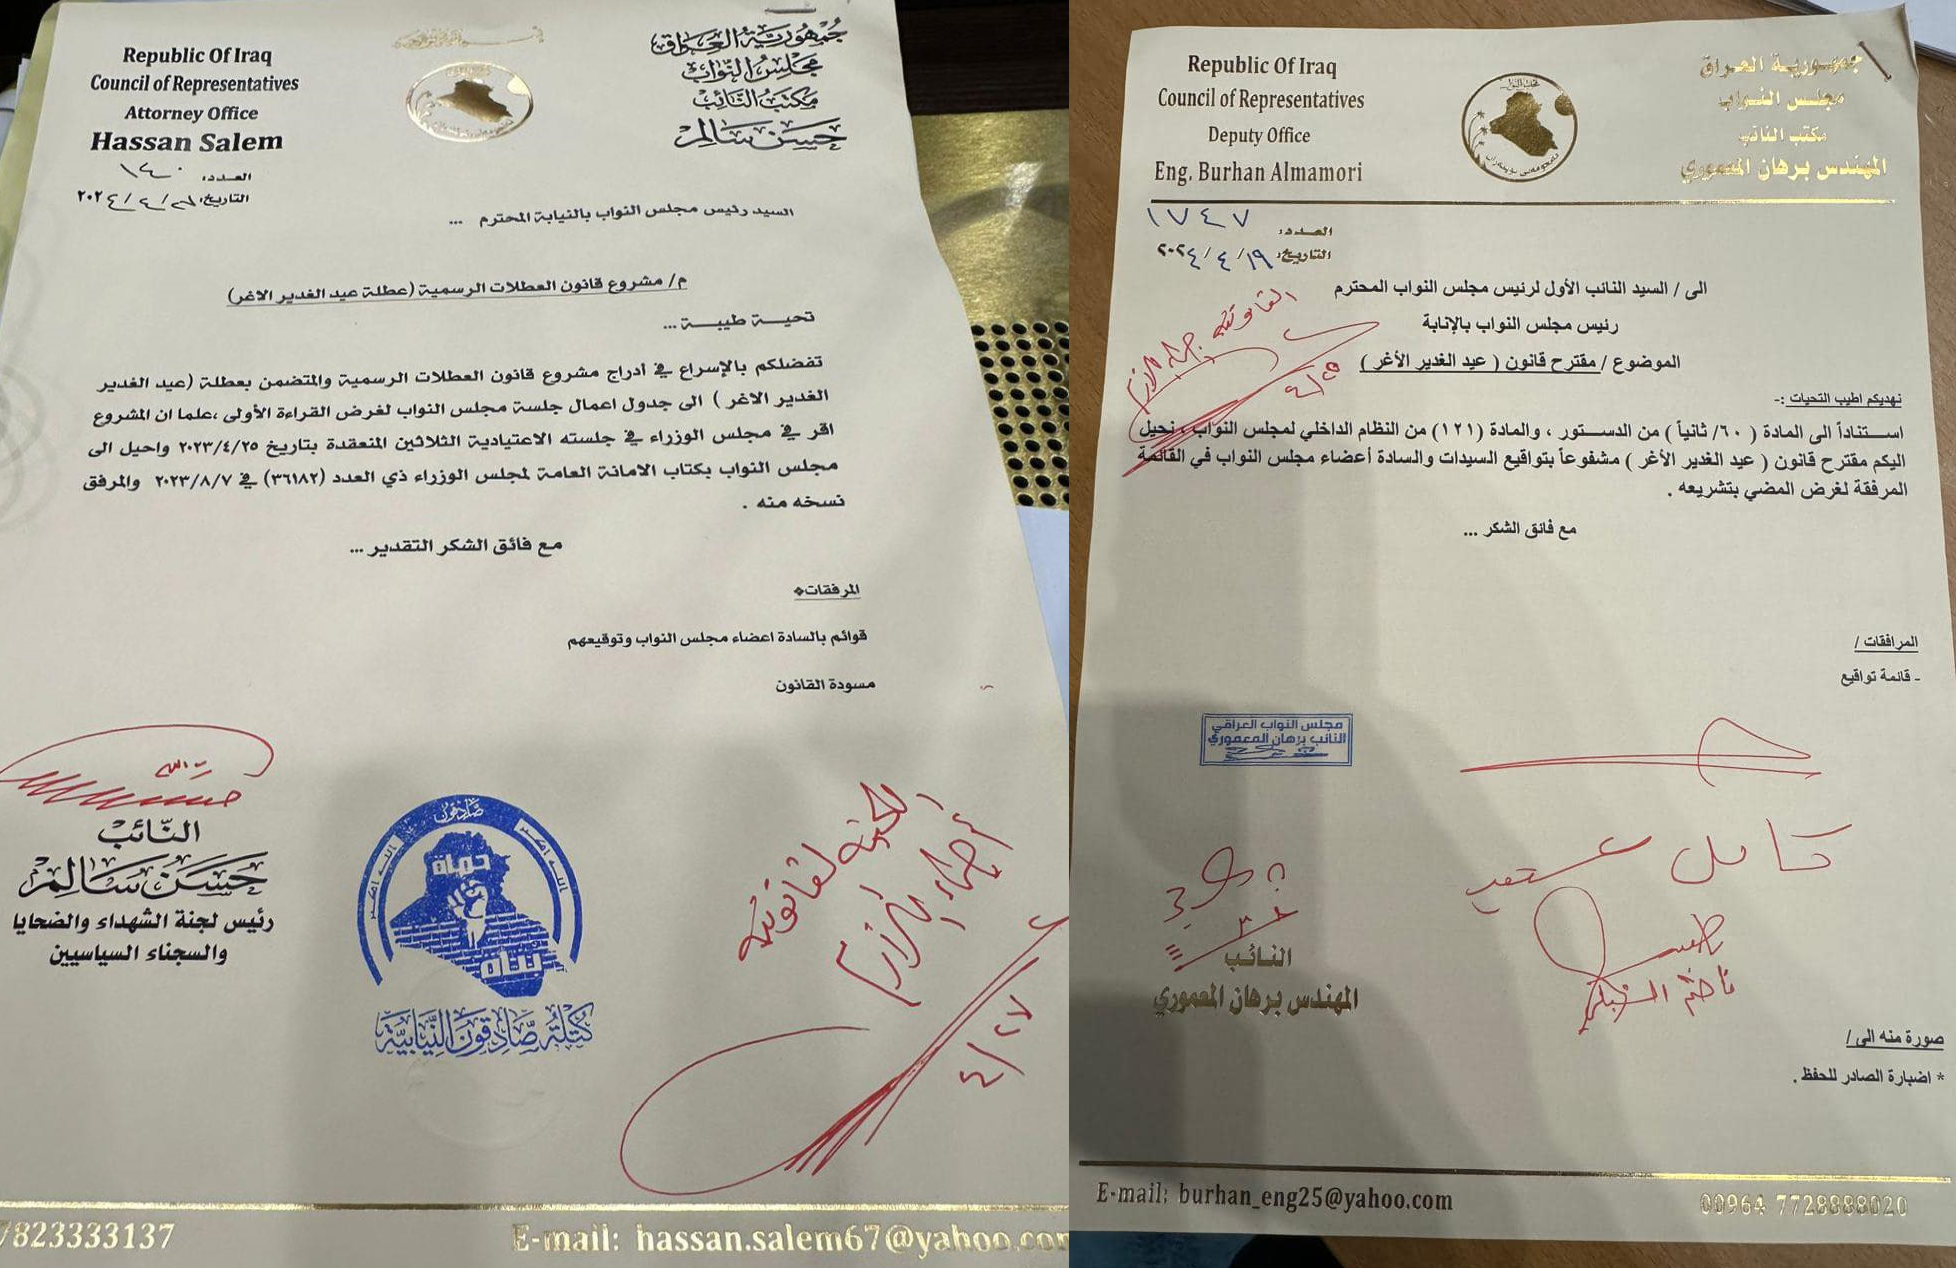 Republic Of Iraq
Council of Representatives
Attorney Office
Hassan Salem
جمهورية العراق
مجلس النواب
مكتب النائب
حسن سالم
العدد: ١٤٠
التاريخ: ٢٠٢٤/٤/
السيد رئيس مجلس النواب بالنيابة المحترم ...
م/ مشروع قانون العطلات الرسمية (عطلة عيد الغدير الاغر)
تحيـــة طيبـــة ...
تفضلكم بالإسراع في أدراج مشروع قانون العطلات الرسمية والمتضمن بعطلة (عيد الغدير
الغدير الاغر ) الى جدول اعمال جلسة مجلس النواب لغرض القراءة الأولى ،علما ان المشروع
اقر في مجلس الوزراء في جلسته الاعتيادية الثلاثين المنعقدة بتاريخ ٢٠٢٣/٤/٢٥ واحيل الى
مجلس النواب بكتاب الامانة العامة لمجلس الوزراء ذي العدد (٣٦١٨٢) في ٢٠٢٣/٨/٧ والمرفق
نسخه منه .
مع فائق الشكر التقدير ...
المرفقات
قوائم بالسادة اعضاء مجلس النواب وتوقيعهم
مسودة القانون
النائب
حسن سالم
رئيس لجنة الشهداء والضحايا
والسجناء السياسيين
صادقون
حماة
بناة
كتلة صادقون النيابية
اللجنة القانونية
إجراء اللازم
٤/٢٧
7823333137
E-mail: hassan.salem67@yahoo.com
Republic Of Iraq
Council of Representatives
Deputy Office
Eng. Burhan Almamori
جمهورية العراق
مجلس النواب
مكتب النائب
المهندس برهان المعموري
العدد: ١٧٤٧
التاريخ: ٢٠٢٤/٤/١٩
الى / السيد النائب الأول لرئيس مجلس النواب المحترم
رئيس مجلس النواب بالإنابة
الموضوع / مقترح قانون ( عيد الغدير الأغر )
القانونية
٤/٢٥
نهديكم اطيب التحيات :-
استناداً الى المادة ( ٦٠/ ثانياً ) من الدستور ، والمادة (١٢١) من النظام الداخلي لمجلس النواب ، نحيل
اليكم مقترح قانون ( عيد الغدير الأغر ) مشفوعاً بتواقيع السيدات والسادة أعضاء مجلس النواب في القائمة
المرفقة لغرض المضي بتشريعه .
مع فائق الشكر ...
المرافقات /
- قائمة تواقيع
مجلس النواب العراقي
النائب برهان المعموري
النائب
المهندس برهان المعموري
صورة منه الى /
* اضبارة الصادر للحفظ .
E-mail: burhan_eng25@yahoo.com
00964 7728888020